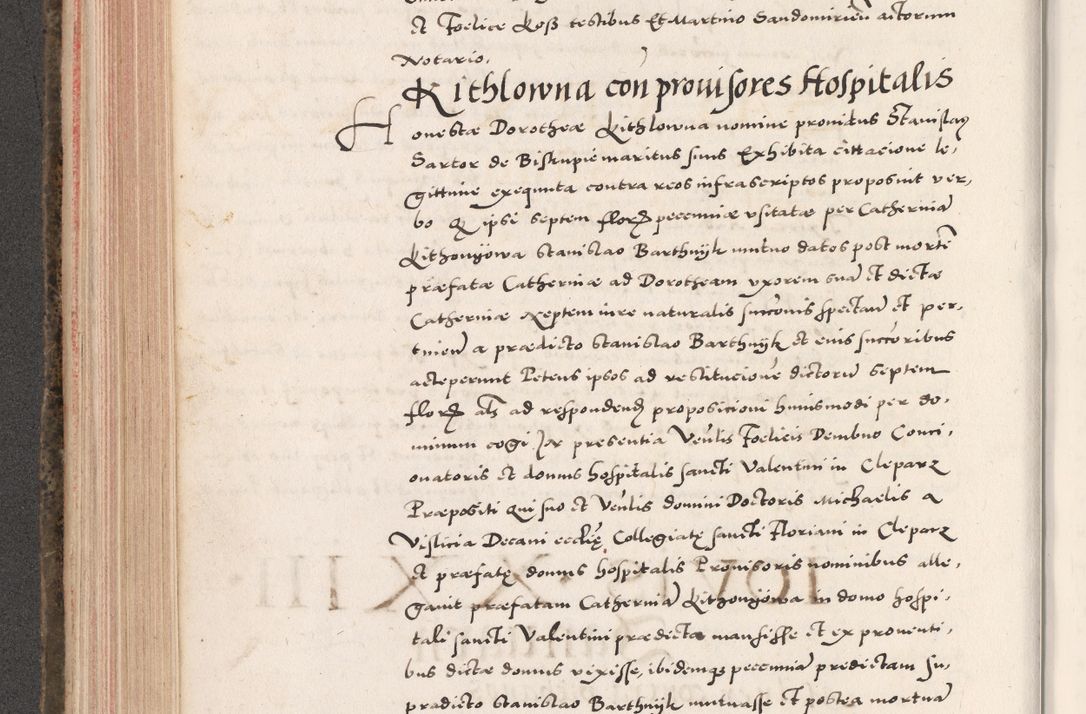 et Foelice Koß testibus Et Martino Sandomirien̄ actorum
Notario.
Kithlowna con prouisores Hospitalis
Honestæ Dorotheæ Kithlowna nomine prouidus Stanislaus
Sartor de Biskupie maritus suus Exhibita cittacione le-
gittime exequuta contra reos infrascriptos proposuit ver-
bo Q ipse septem floꝝ pecuniæ vsitatæ per Catherinā
Kithonyowa Stanislao Barthnijk mutuo datos post mortē
præfatæ Catherinæ ad Dorotheam vxorem suā et dictæ
Catherinæ Neptem iure naturalis succonis spectan̄ et per-
tinen̄ a prædicto Stanislao Barthnijk et eius succoribus
acceperunt Petens ipsos ad restitucionē dictorū septem
floꝝ als ad respondendꝫ proposicioni huiusmodi per do-
minum cogi. In presentia Venlis Foelicis Dembno Conci-
onatoris et domus hospitalis sancti Valentini in Cleparz
Præpositi qui suo et Venlis domini Doctoris Michaelis a
Vislicia Decani ecclię Collegiatę sancti Floriani in Cleparz
et præfatę domus hospitalis Prouisoris nominibus alle-
gauit præfatam Catherinā Kithonyowa in domo hospi-
tali sancti Valentini prædicta mansisse et ex prouenti-
bus dictæ domus vixisse, ibidemqꝫ pecuniā predictam su-
pradicto Stanislao Barthnijk mutuasse et postea mortuā